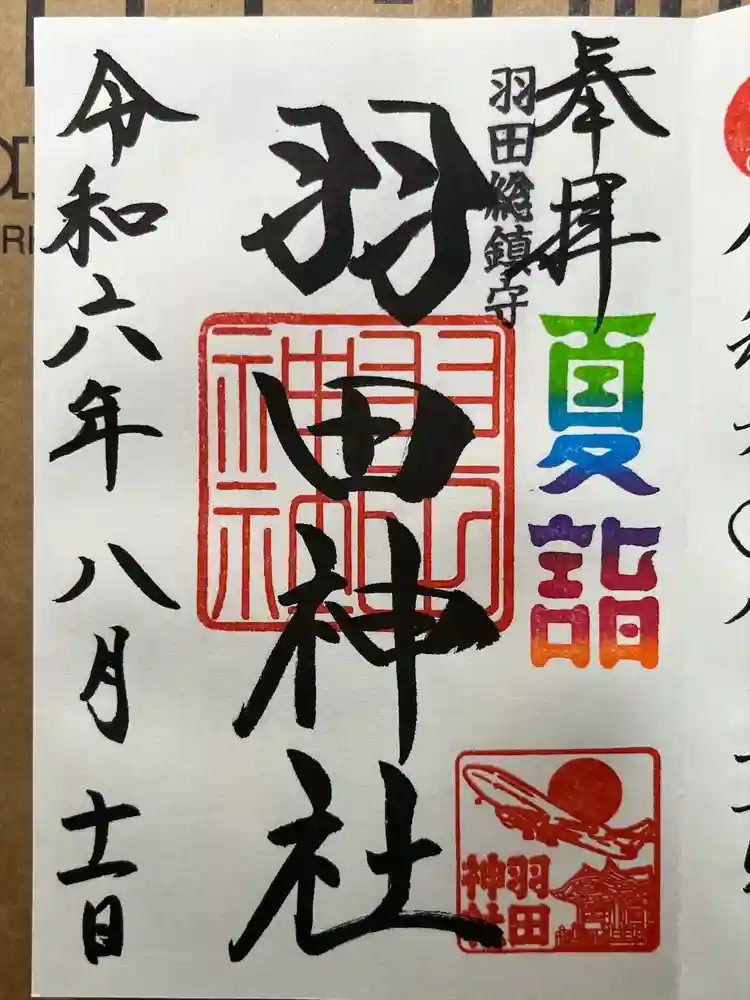 奉拝
夏詣
羽田総鎮守
羽田神社
羽田
神社
羽田
神社
令和六年 八月 十一日